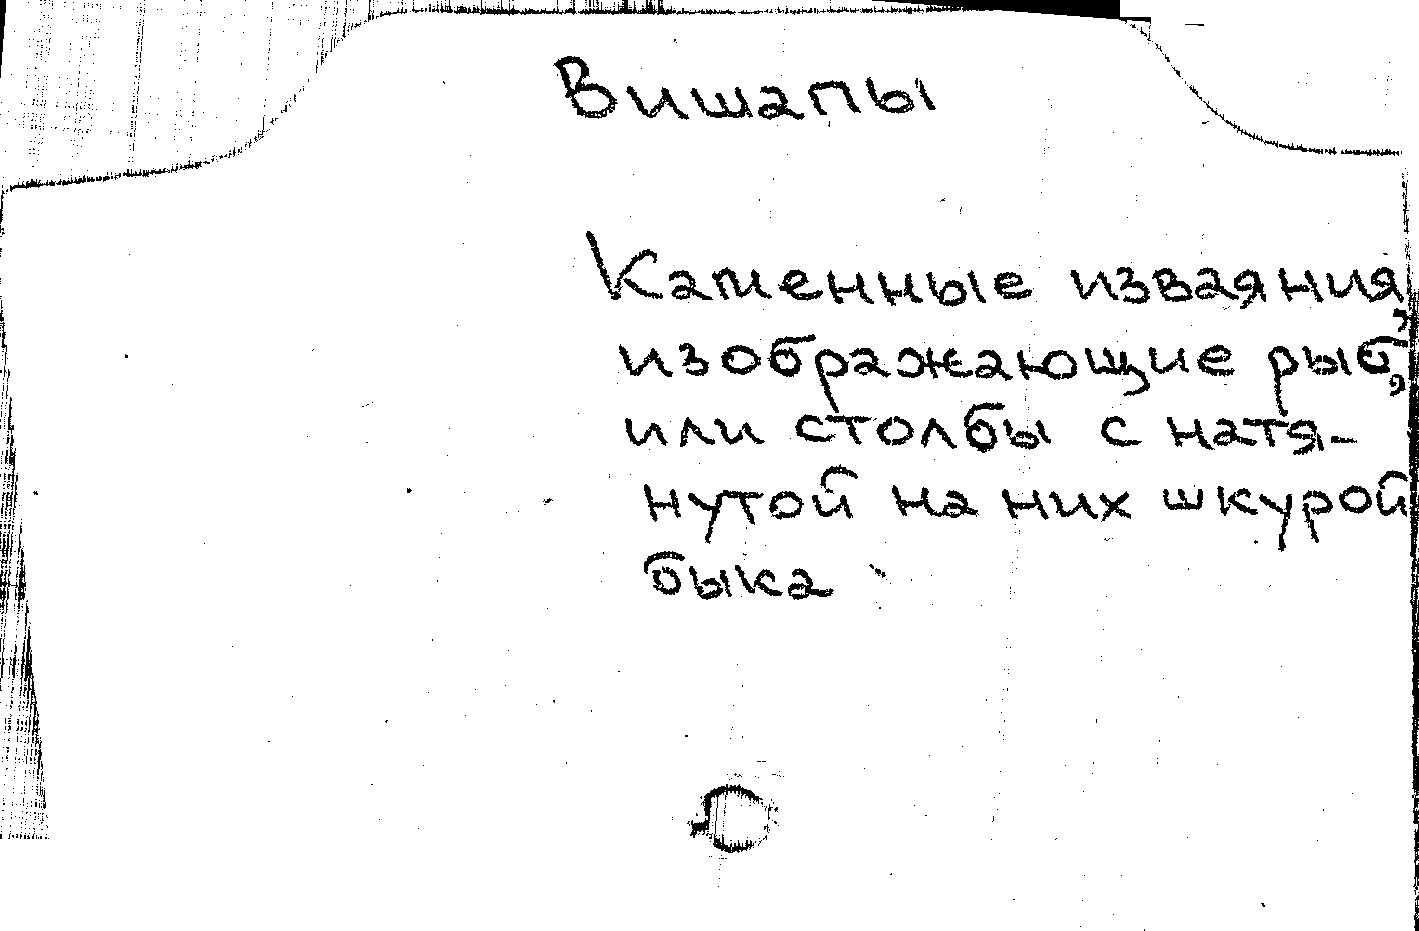 Вишапы
Каменные изваяния,
изображающие рыб,
или столбы с натя-
нутой на них шкурой
быка